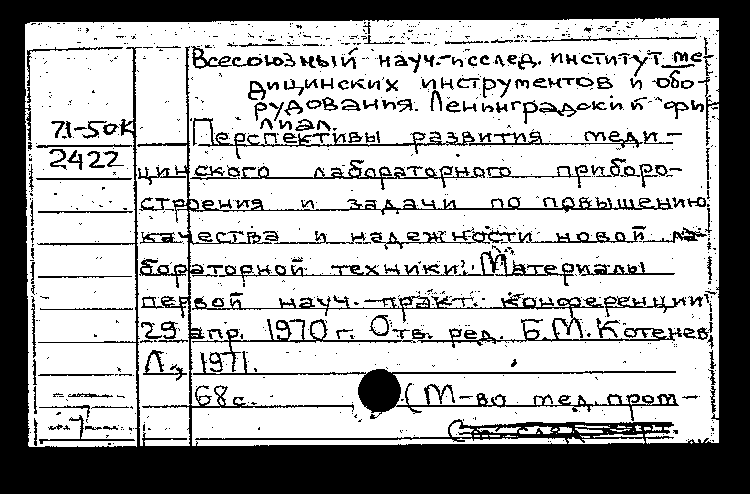 Всесоюзный науч.-исслед. институт ме-
дицинских инструментов и обо-
рудования. Ленинградский фи-
лиал.
71-50К
2422
Перспективы развития меди-
цинского лабораторного приборо-
строения и задачи по повышению
качества и надежности новой ла-
бораторной техники. Материалы
первой науч.-практ. конференции
29 апр. 1970 г. Отв. ред. Б.М. Котенев
Л., 1971.
68 с. (М-во мед. пром-
См. след. карт.